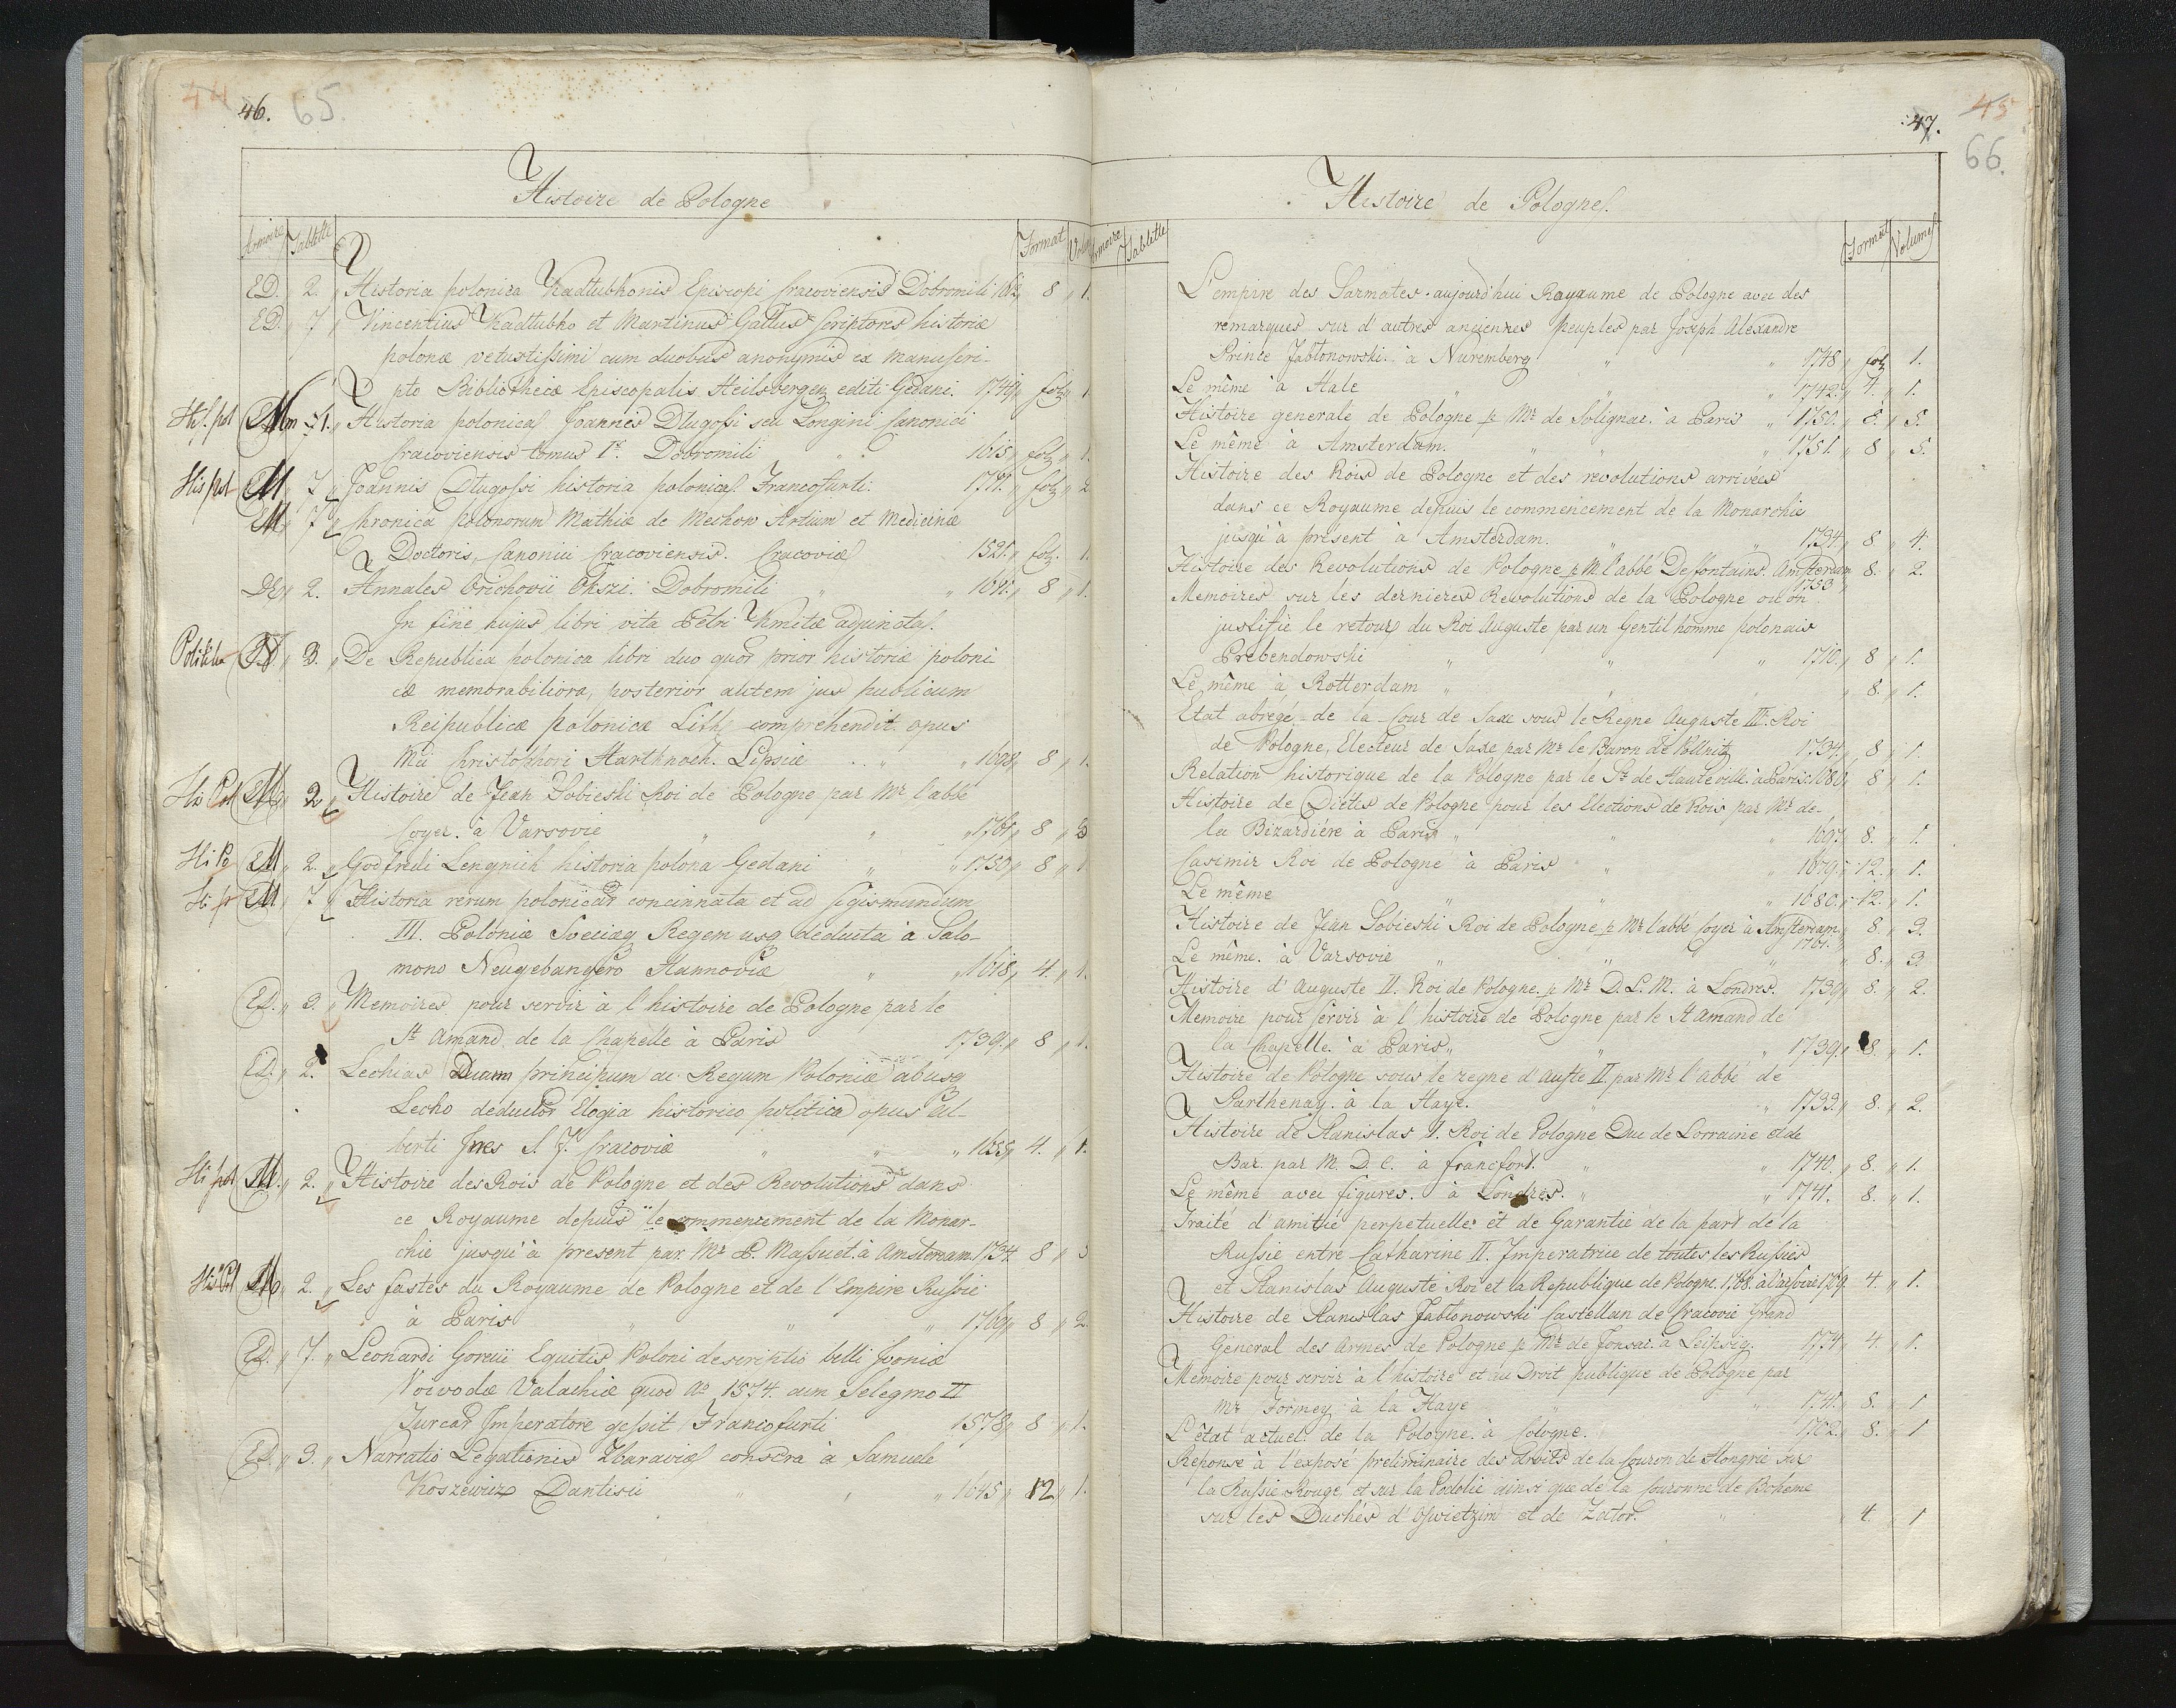 44
46. 65.
Histoire de Pologne
Armoire Tablette Format Volu
ED. 2. Historia polonica Kadtubkonis Episcopi Cracoviensis Dobromili 1612 8 1.
ED. 7 Vincentius Kadtubko et Martinus Gallus Scriptores historiæ
polonæ vetustissimi cum duobus anonymis ex manuscri-
pto Bibliothecæ Episcopalis Heilsbergen editi Gedani. 1749 fol 1
His. pol 1. Historia polonica Joannis Dlugossi seu Longini Canonici
Cracoviensis tomus I. Dobromili 1615 fol 1.
His pol M 7 Joannis Dlugossi historia polonica Francofurti. 1711. fol 2
M 7 Chronica polonorum Mathiæ de Mechow Artium et Medicinæ
Doctoris, Canonici Cracoviensis. Cracoviæ 1521. fol. 1.
2. Annales Orichovii Okszi. Dobromili 1611. 8 1.
In fine hujus libri vita Petri Kmitæ adjuncta.
Politika 3. De Republica polonica libri duo quor prior historiæ poloni
cæ memorabiliora, posterior autem jus publicum
Reipublicæ polonicæ Lith comprehendit opus
Mu Christophori Harthnoch. Lipsiæ 1698 8 1.
His Pol M 2 Histoire de Jean Sobieski Roi de Pologne par Mr l'abbé
Coyer. à Varsovie 1761 8 3
Hi Po M 2. Godfredi Lengnich historia polona Gedani 1750 8 1
Hi po M 7 Historia rerum polonicar concinnata et ad Sigismundum
III. Poloniæ Sveciæq Regem usq deducta à Salo-
mono Neugebangero Hannoviæ 1618 4. 1.
Ed. 3. Memoires pour servir à l'histoire de Pologne par le
St Amand de la Chapelle à Paris 1739. 8 1.
Ed. 2. Lechias Ducum principum ac Regum Poloniæ ab usq
Lecho deductor Elogia historico politica opus Al-
berti Ines S. J. Cracoviæ 1655 4. 1.
Hi pol M. 2. Histoire des Rois de Pologne et des Revolutions dans
ce Royaume depuis le commencement de la Monar-
chie jusqu'à present par Mr P. Massuet. à Amsterdam. 1734 8 3
His Pol M 2. Les fastes du Royaume de Pologne et de l'Empire Russie
à Paris 1769 8 2
Ed. 7. Leonardi Gorecii Equitis Poloni descriptio belli Ivoniæ
Voivodæ Valachiæ quod Ao 1574. cum Selegmo II
Turcar Imperatore gessit Francofurti 1578 8 1.
Ed. 3. Narratio Legationis Zbaraviæ conscra à Samuele
Koszewicz Dantisci 1645 12 1.
45
47.
66.
Histoire de Pologne.
Armoire Tablette Format Volume
L'empire des Sarmates aujourd'hui Royaume de Pologne avec des
remarques sur d'autres anciennes peuples par Joseph Alexandre
Prince Jabtonowski à Nuremberg 1748 fol 1.
Le même à Hale 1742. 4. 1.
Histoire generale de Pologne p Mr de Solignac. à Paris 1750. 8. 5.
Le même à Amsterdam. 1751. 8 5.
Histoire des Rois de Pologne et des revolutions arrivées
dans ce Royaume depuis le commencement de la Monarchie
jusqu'à présent à Amsterdam. 1734 8 4.
Histoire des Revolutions de Pologne p M. l'abbé Desfontains. Amsterdam 8. 2.
1753
Memoires sur les dernieres Revolutions de la Pologne ou on
justifie le retour du Roi Auguste par un Gentil homme polonais
Prebendowski 1710. 8 1.
Le même à Rotterdam 8. 1.
Etat abregé de la Cour de Saxe sous le Regne Auguste III. Roi
de Pologne, Electeur de Saxe par Mr le Baron de Pöllnitz 1734. 8 1.
Relation historique de la Pologne par le Sr de Hauteville. à Paris. 1686. 8 1.
Histoire de Diétes de Pologne pour les Elections de Rois par Mr de-
la Bizardiére à Paris 1697. 8. 1.
Casimir Roi de Pologne à Paris 1679. 12. 1.
Le même 1680. 12. 1.
Histoire de Jean Sobieski Roi de Pologne p Mr l'abbé Coyer à Amsterdam 8. 3.
1761.
Le même. à Varsovie 8. 3.
Histoire d'Auguste II. Roi de Pologne p Mr D. L. M. à Londres. 1739 8. 2.
Memoire pour servir à l'histoire de Pologne par le St Amand de
la Chapelle. à Paris 1739. 8. 1.
Histoire de Pologne sous le regne d'Auste II. par Mr l'abbé de
Parthenay. à la Haye. 1733. 8. 2.
Histoire de Stanislas I. Roi de Pologne Duc de Lorraine et de
Bar. par M. D. C. à francfort. 1740. 8. 1.
Le même avec figures. à Londres. 1741. 8. 1.
Traité d'amitié perpetuelle et de Garantie de la part de la
Russie entre Catharine II. Imperatrice de toutes les Russies
et Stanislas Auguste Roi et la Republique de Pologne. 1768. à Varsovie 1769. 4. 1.
Histoire de Stanislas Jabtonowski Castellan de Cracovie Grand
General des Armes de Pologne p Mr de Jonsac. à Leipsig. 1774 4. 1.
Memoire pour servir à l'histoire et au Droit publique de Pologne par
Mr Formey à la Haye 1741. 8. 1
L'état actuel de la Pologne. à Cologne. 1702. 8. 1
Reponse à l'exposé preliminaire des droits de la Couron de Hongrie sur
la Russie Rouge, et sur la Podolie ainsi que de la Couronne de Boheme
sur les Duchés d'Oswietzim et de Zator. 4. 1